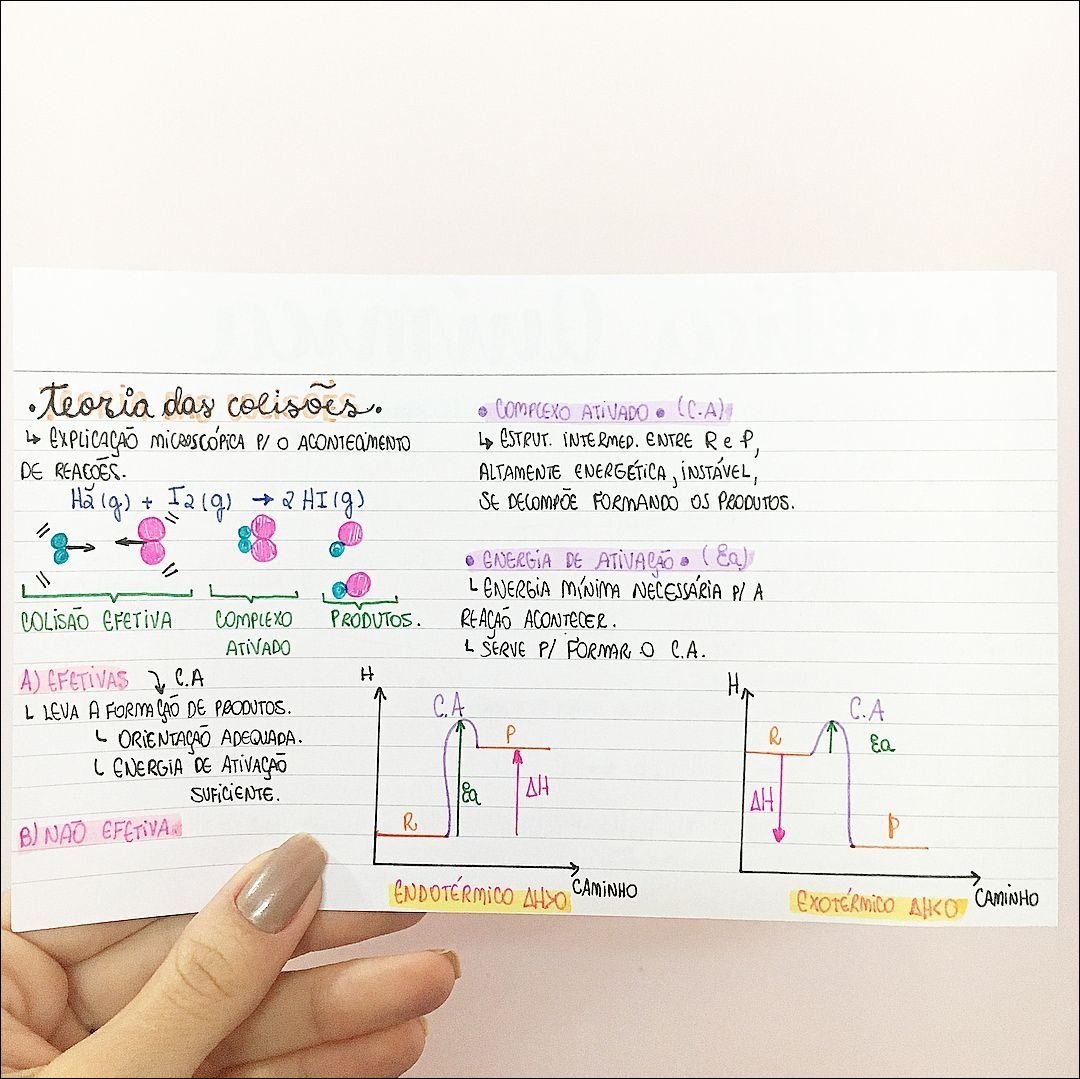 .Teoria das colisões.
↳ EXPLICAÇÃO MICROSCÓPICA P/ O ACONTECIMENTO
DE REAÇÕES.
H2(g) + I2(g) → 2HI(g)
COLISÃO EFETIVA
COMPLEXO
ATIVADO
PRODUTOS.
A) EFETIVAS ↘ C.A
└ LEVA A FORMAÇÃO DE PRODUTOS.
└ ORIENTAÇÃO ADEQUADA.
└ ENERGIA DE ATIVAÇÃO
SUFICIENTE.
B) NAÕ EFETIVA.
• COMPLEXO ATIVADO • (C.A)
↳ ESTRUT. INTERMED. ENTRE R e P,
ALTAMENTE ENERGÉTICA, INSTÁVEL,
SE DECOMPÕE FORMANDO OS PRODUTOS.
• ENERGIA DE ATIVAÇÃO • (Ea)
└ ENERGIA MÍNIMA NECESSÁRIA P/ A
REAÇÃO ACONTECER.
└ SERVE P/ FORMAR O C.A.
H
C.A
P
Ea
ΔH
R
CAMINHO
ENDOTÉRMICO ΔH>0
H
C.A
R
Ea
ΔH
P
CAMINHO
EXOTÉRMICO ΔH<0